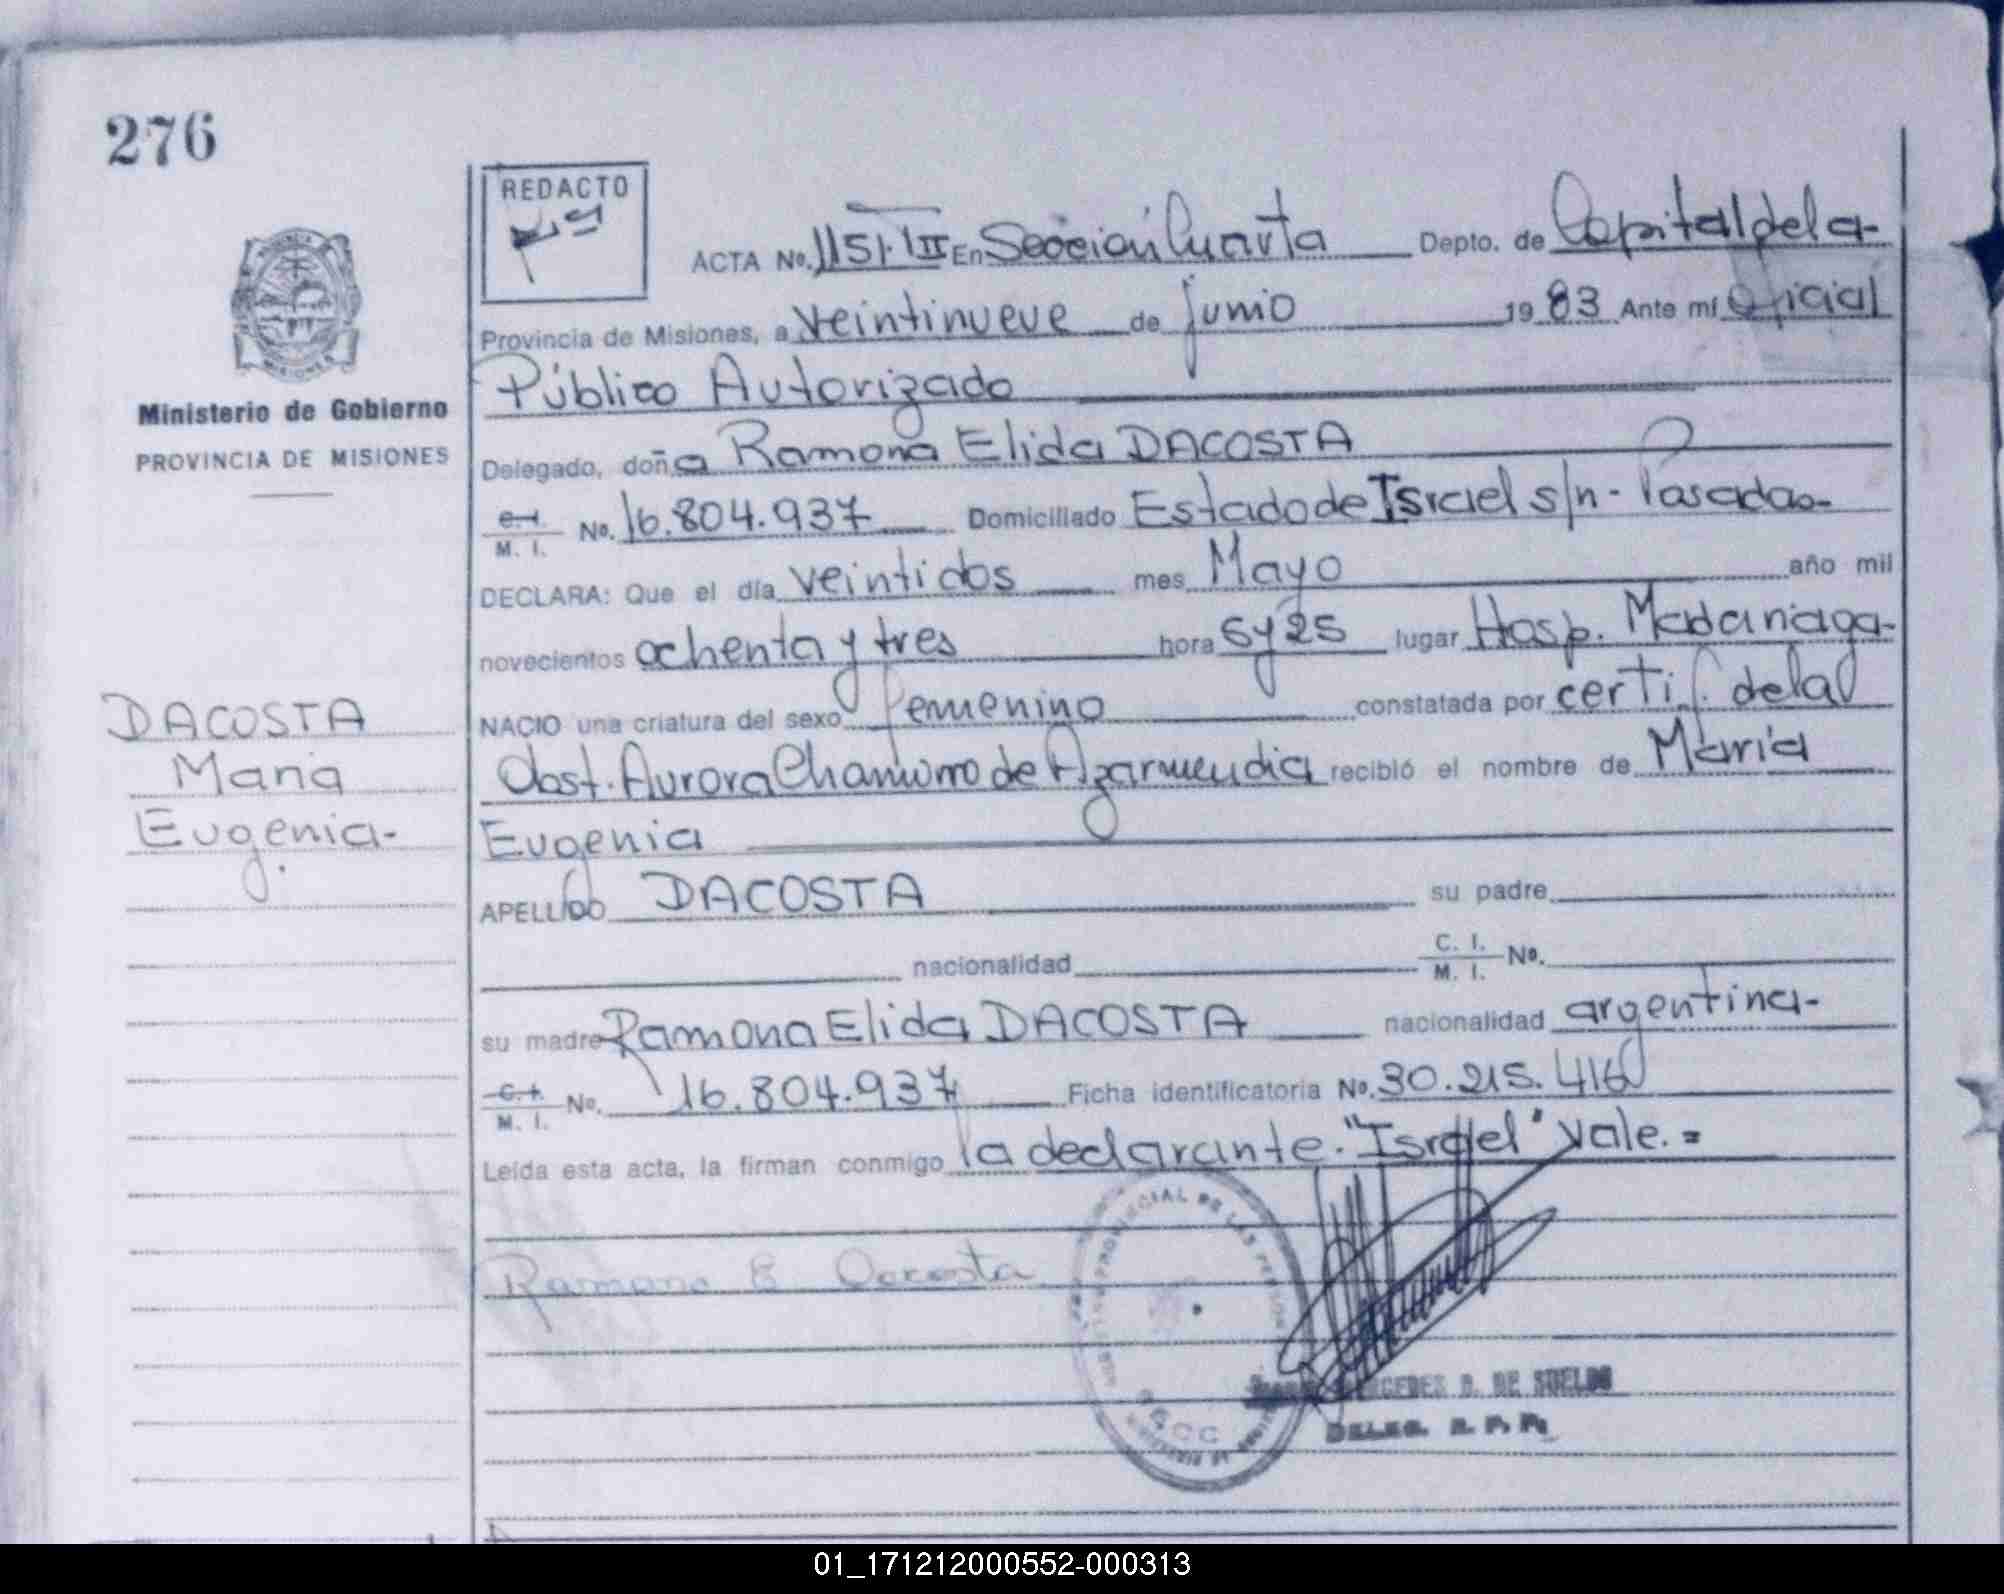 276
REDACTO
ACTA No. 1151.III En Sección Cuarta Depto. de Capital de la-
Provincia de Misiones, a veintinueve de junio 19 83 Ante mí Oficial
Público Autorizado
Ministerio de Gobierno
PROVINCIA DE MISIONES
Delegado, doña Ramona Elida DACOSTA
C. I. M. I. No. 16.804.937 Domiciliado Estado de Israel s/n - Posadas-
DECLARA: Que el día veintidos mes Mayo año mil
novecientos ochenta y tres hora 6 y 25 lugar Hosp. Madariaga-
NACIO una criatura del sexo femenino constatada por certif. de la
Obst. Aurora Chamorro de Azarmendia recibió el nombre de María
Eugenia
DACOSTA
Maria
Eugenia-
APELLIDO DACOSTA su padre
nacionalidad C. I. M. I. No.
su madre Ramona Elida DACOSTA nacionalidad argentina-
C. I. M. I. No. 16.804.937 Ficha identificatoria No. 30.215.416
Leída esta acta, la firman conmigo la declarante. "Israel" Vale. =
Ramona E Dacosta
PROVINCIAL DE LAS PERSONAS
MERCEDES D. DE SUELDO
DELEG. R. P. P.
01_171212000552-000313